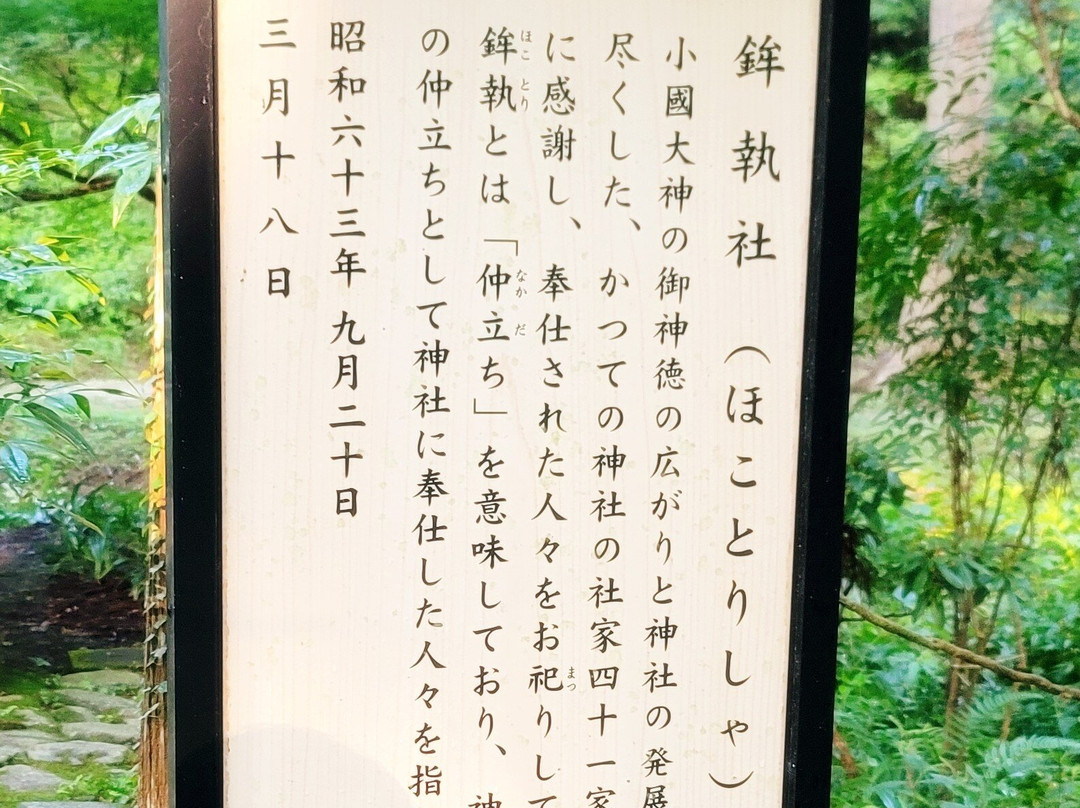 鉾執社（ほことりしゃ）
小國大神の御神徳の広がりと神社の発展
尽くした、かつての神社の社家四十一家
に感謝し、奉仕された人々をお祀りして
鉾執とは「仲立ち」を意味しており、神
の仲立ちとして神社に奉仕した人々を指
昭和六十三年 九月二十日
三月十八日